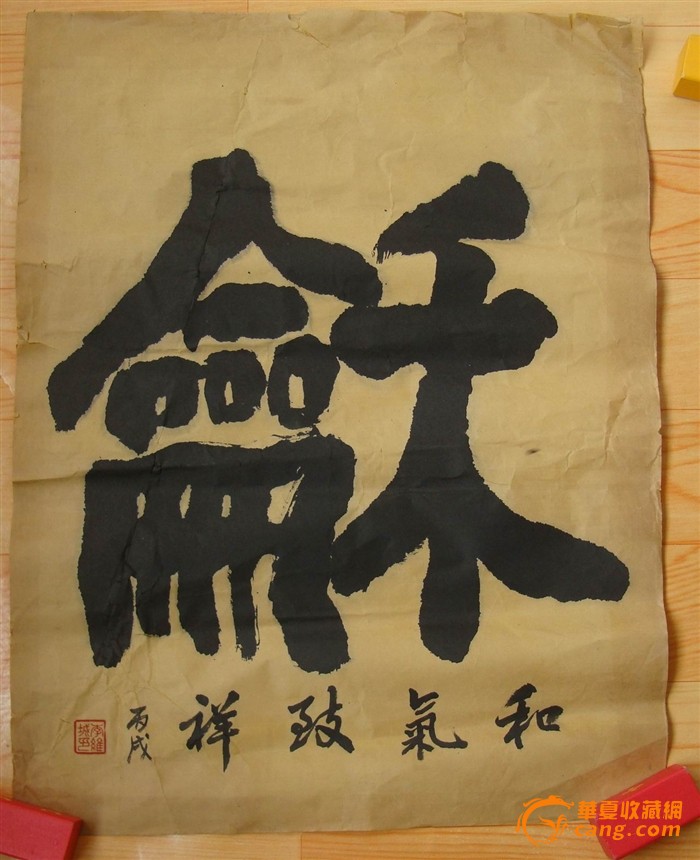 龢
和氣致祥
丙戌
華夏收藏網
cang.com